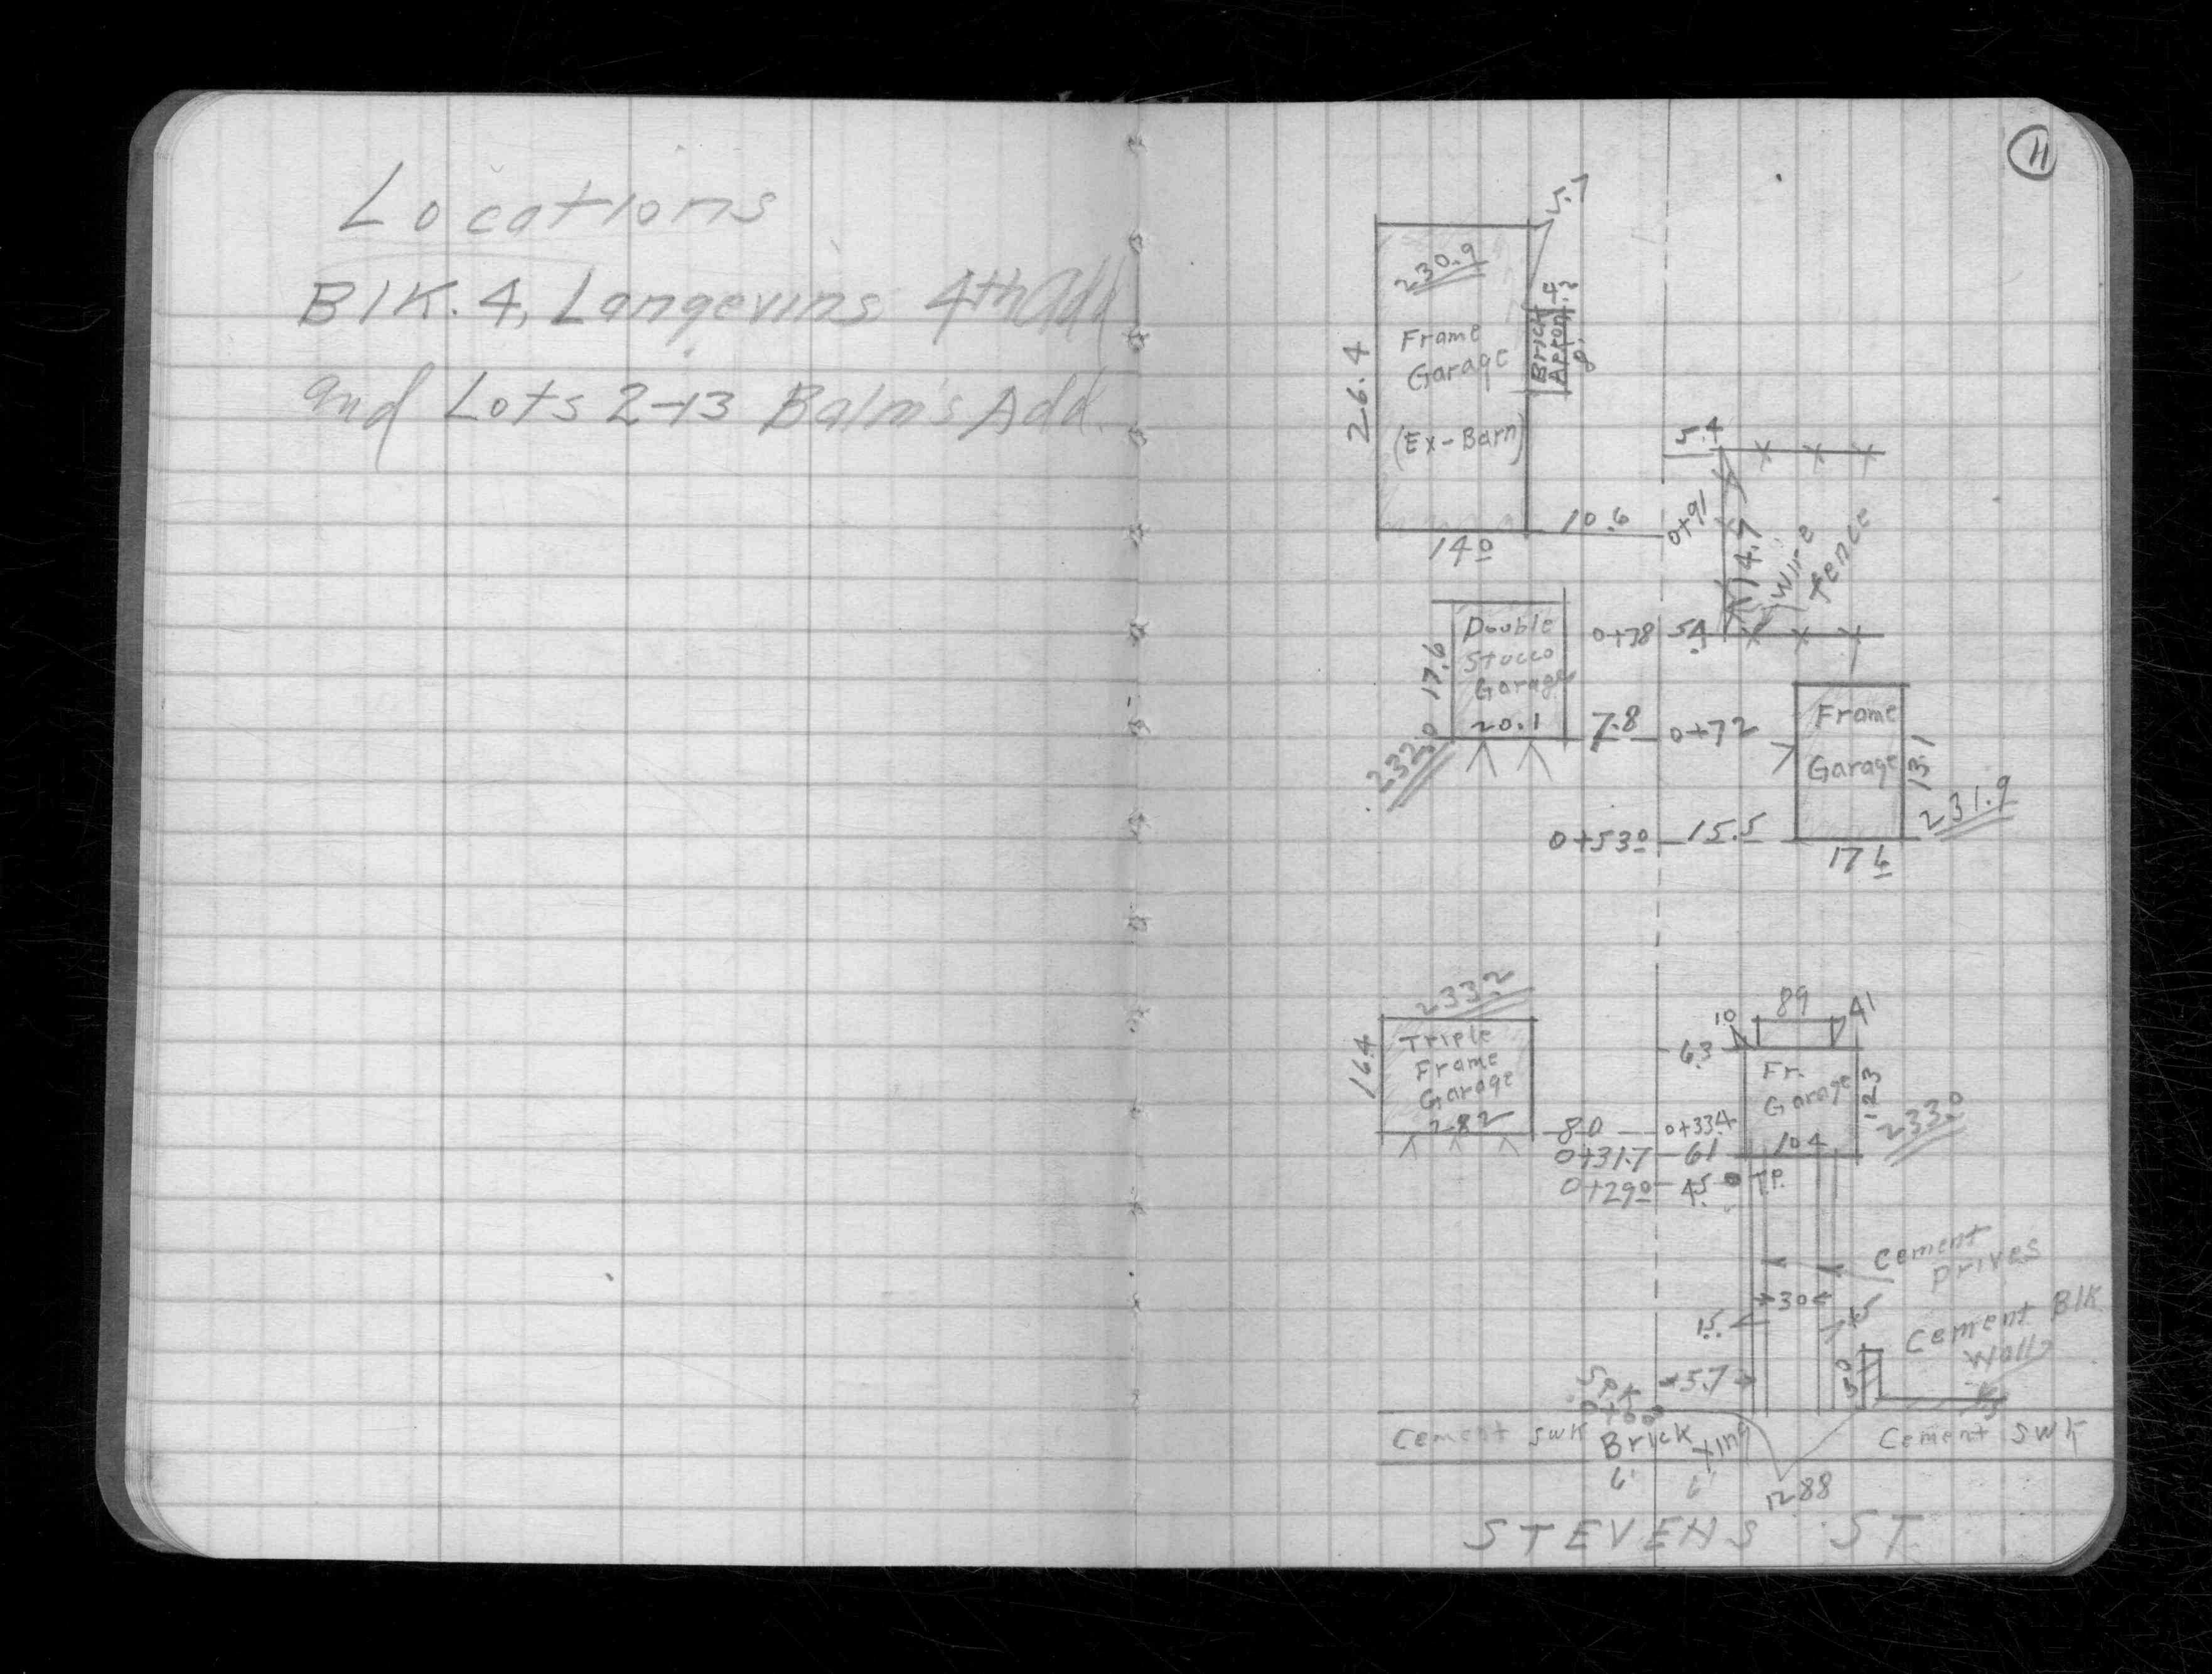 Locations
Blk. 4, Langevins 4th Add
and Lots 2-13 Balm's Add.
11
5.7
230.9
Frame
Garage
(Ex-Barn)
26.4
Brick
Apron
14 0
10.6
0+91
5.4
14.7
Wire
fence
Double
Stucco
Garage
20.1
17.6
232.0
0+78
5.4
7.8
0+72
Frame
Garage
13.1
231.9
0+53 0
15.5
17 6
233.2
Triple
Frame
Garage
28.2
16.4
8.0
0+33.4
10
89
41
6.3
Fr.
Garage
10.4
12.3
233.0
0+31.7
6.1
0+29 0
4.5
T.P.
Cement
Drives
30
1.5
1.5
Cement Blk
Wall
5.7
Spk
0+00
Cement Swk
Brick Xing
Cement Swk
6'
6'
1288
STEVENS ST